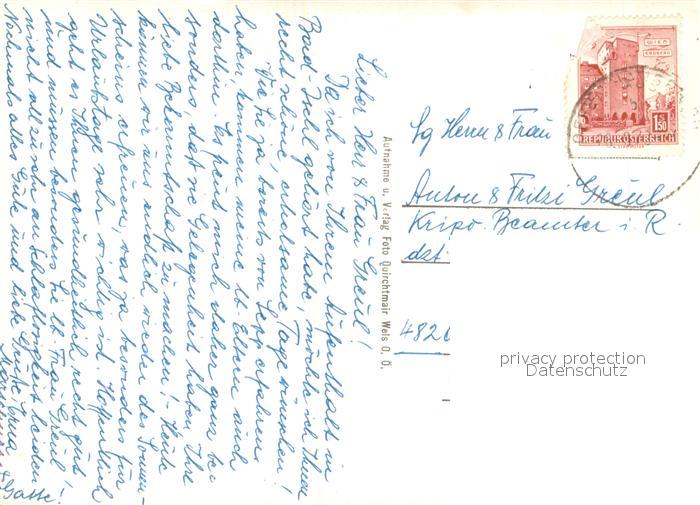 Lieber Herr & Frau Greul!
Da ich von Ihrem Aufenthalt in
Bad-Ischl gehört habe, möchte ich Ihnen
recht schöne, erholsame Tage wünschen!
Wie Sie ja bereits von Sepp erfahren
haben, kommen meine lb Eltern auch
dorthin. Es freut Euch daher ganz be
sonders, daß wir Gelegenheit haben Ihre
liebe Bekanntschaft zu machen! - Heute
können wir uns endlich wieder des Sonnen-
scheins erfreuen, was ja besonders für
Urlaubstage sehr wichtig ist. Hoffentlich
geht es Ihnen gesundheitlich recht gut
und müssen besonders Sie lb. Frau Greul
nicht allzusehr an Schlaflosigkeit leiden!
Nochmals alles Gute und liebe Grüße Erna
& Gatte!
Aufnahme u. Verlag Foto Quirchtmair Wels O. Ö.
WIEN
ERDBERG
S 1.50
REPUBLIK ÖSTERREICH
Sg Herrn & Frau
Anton & Fritzi Greul
Kripo. Beamter i. R.
dzt.
4820
privacy protection
Datenschutz